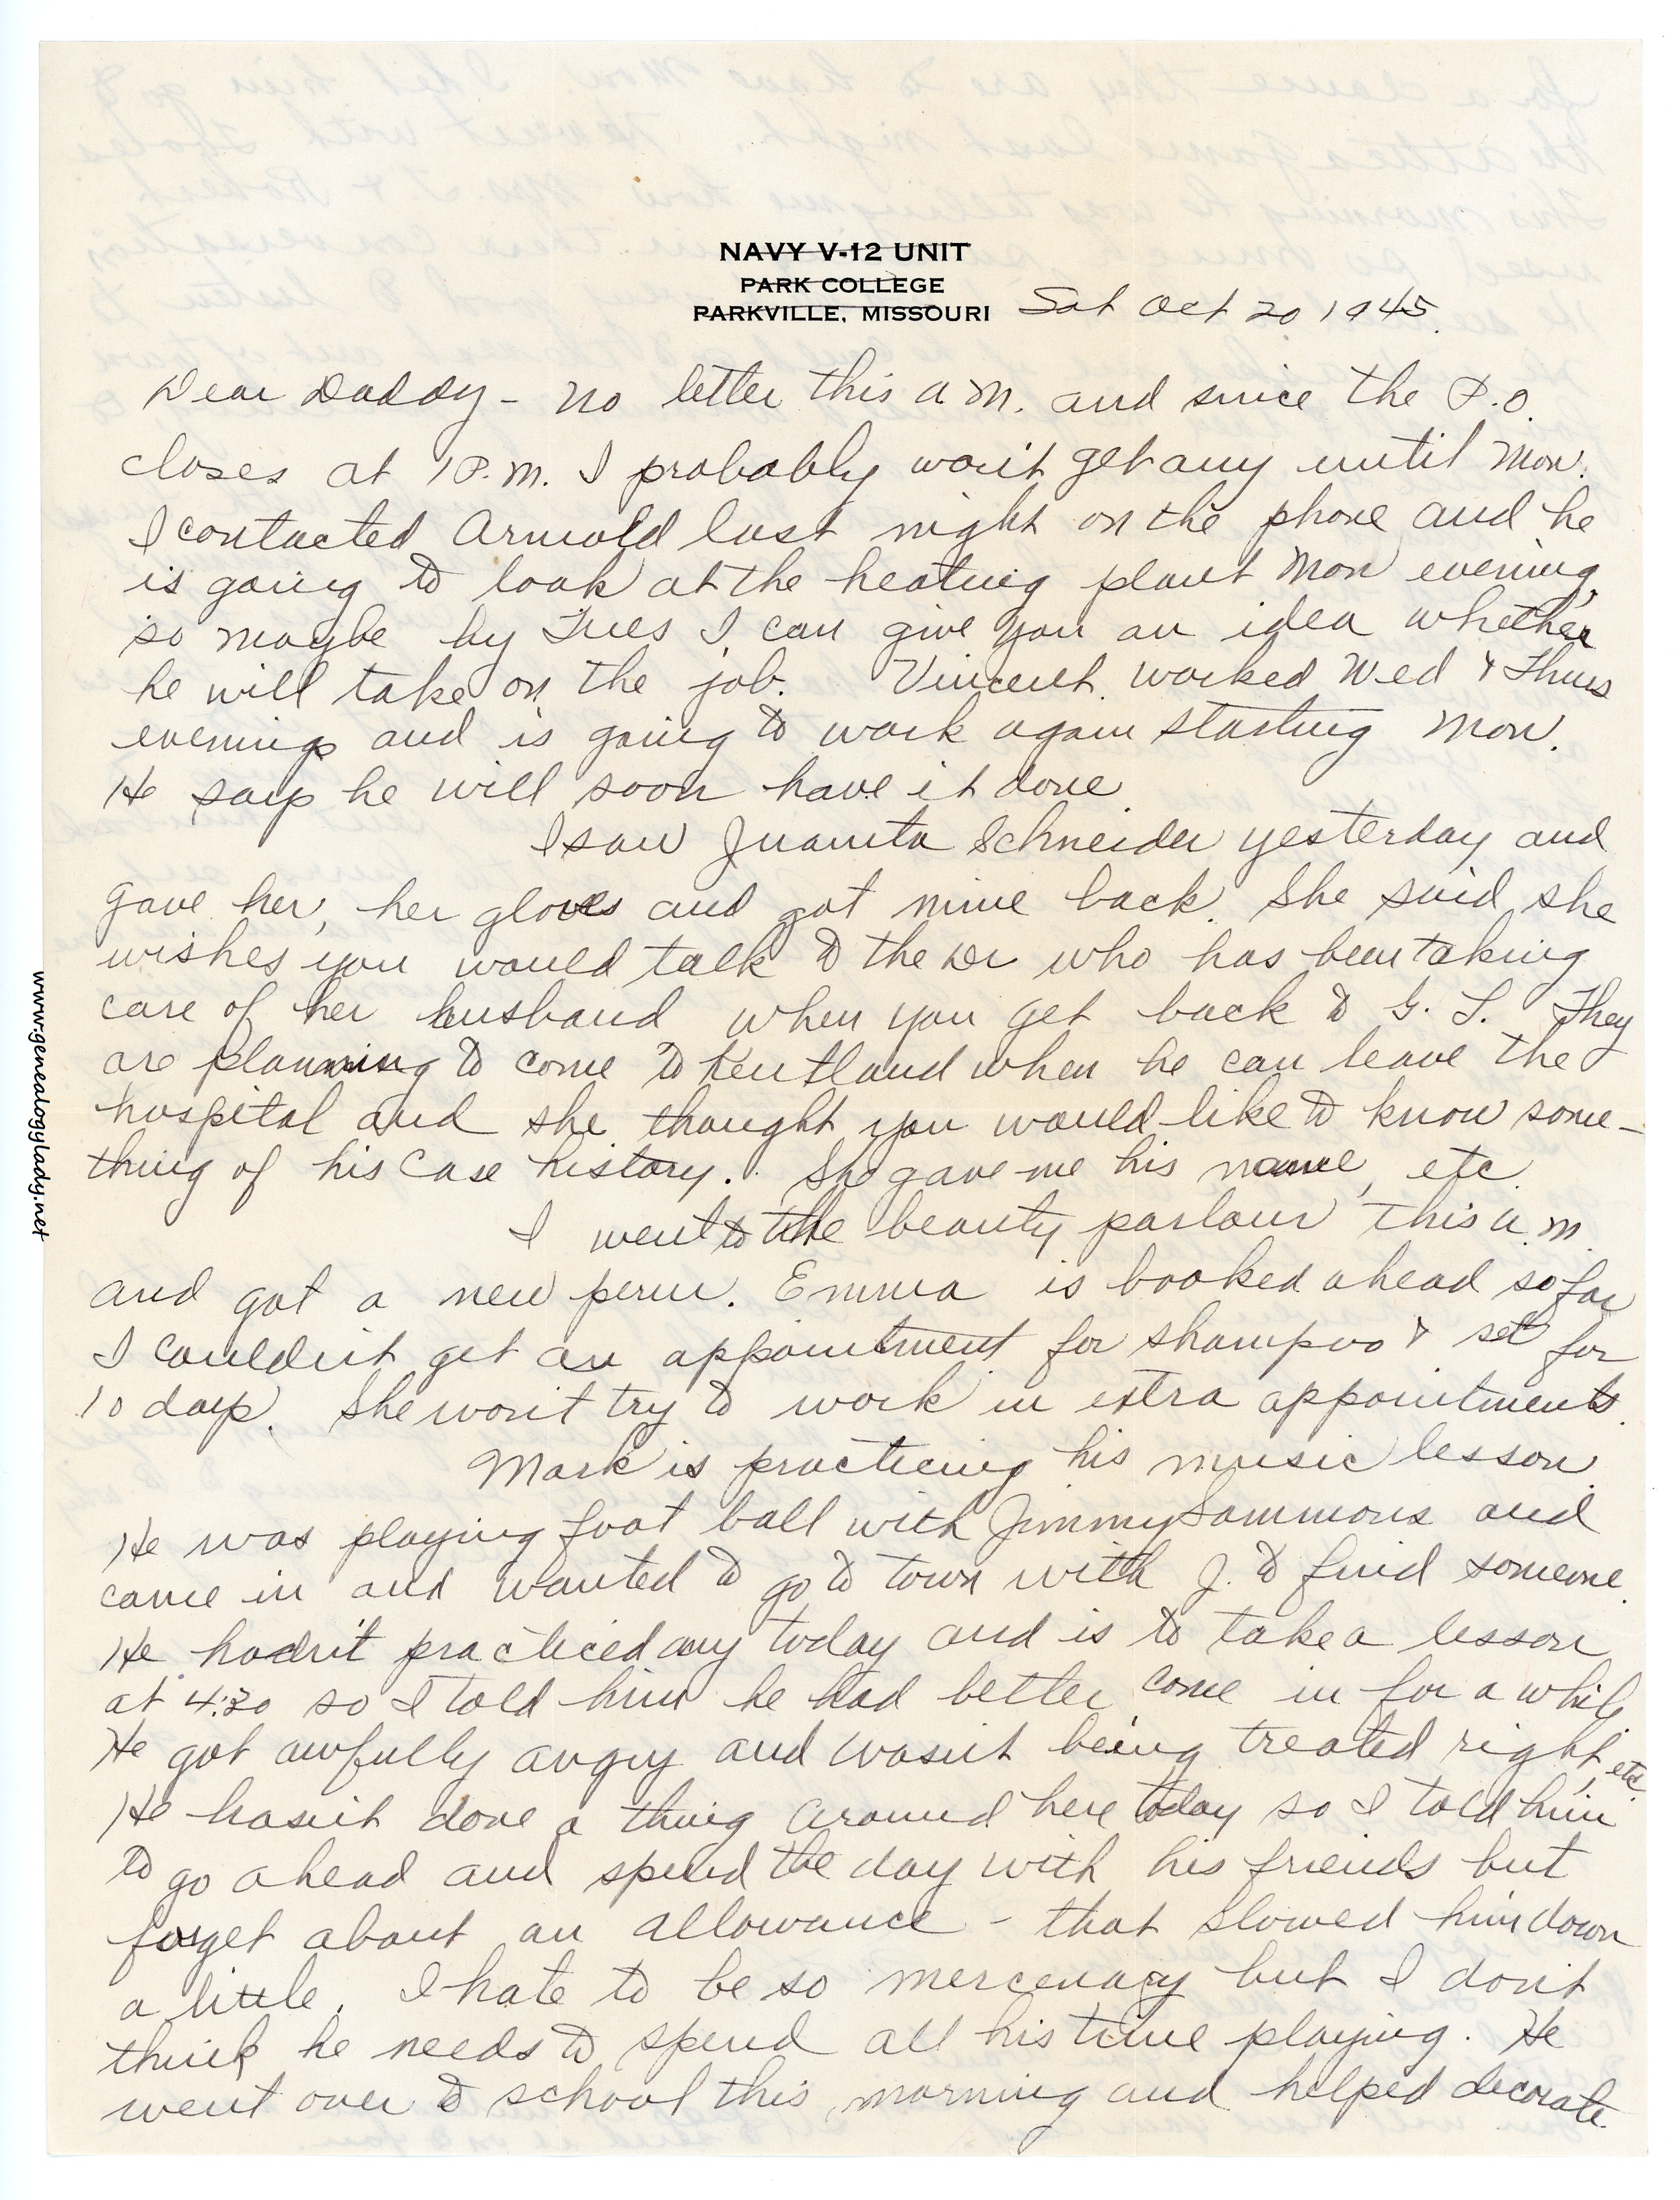 NAVY V-12 UNIT
PARK COLLEGE
PARKVILLE, MISSOURI
Sat Oct 20 1945.
Dear Daddy - No letter this a.m. and since the P.O.
closes at 1 P.M. I probably won't get any until Mon.
I contacted Arnold last night on the phone and he
is going to look at the heating plant Mon evening,
so maybe by Tues I can give you an idea whether
he will take on the job. Vincent worked Wed & Thurs
evenings and is going to work again starting Mon.
He says he will soon have it done.
I saw Juanita Schneider yesterday and
gave her, her gloves and got mine back. She said she
wishes you would talk to the Dr who has been taking
care of her husband when you get back to G. L. They
are planning to come to Kentland when he can leave the
hospital and she thought you would like to know some-
thing of his case history. She gave me his name, etc.
I went to the beauty parlour this a.m.
and got a new perm. Emma is booked ahead so far
I couldn't get an appointment for shampoo & set for
10 days. She won't try to work in extra appointments.
Mark is practicing his music lesson
He was playing foot ball with Jimmy Sammons and
came in and wanted to go to town with J. to find someone.
He hadn't practiced any today and is to take a lesson
at 4:30 so I told him he had better come in for a while.
He got awfully angry and wasn't being treated right, etc.
He hasn't done a thing around here today so I told him
to go ahead and spend the day with his friends but
forget about an allowance - that slowed him down
a little. I hate to be so mercenary but I don't
think he needs to spend all his time playing. He
went over to school this morning and helped decorate
www.genealogylady.net